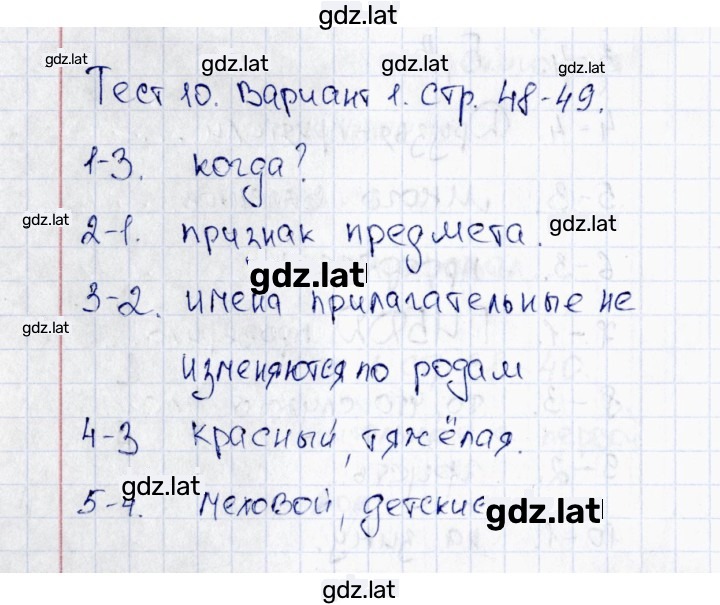 gdz.lat
gdz.lat gdz.lat gdz.lat gdz.lat
Тест 10. Вариант 1. стр. 48-49.
1-3. когда?
gdz.lat gdz.lat
2-1. признак предмета.
gdz.lat
3-2. имена прилагательные не
gdz.lat
изменяются по родам
4-3 красный, тяжёлая.
gdz.lat
5-4. меховой, детские
gdz.lat
gdz.lat